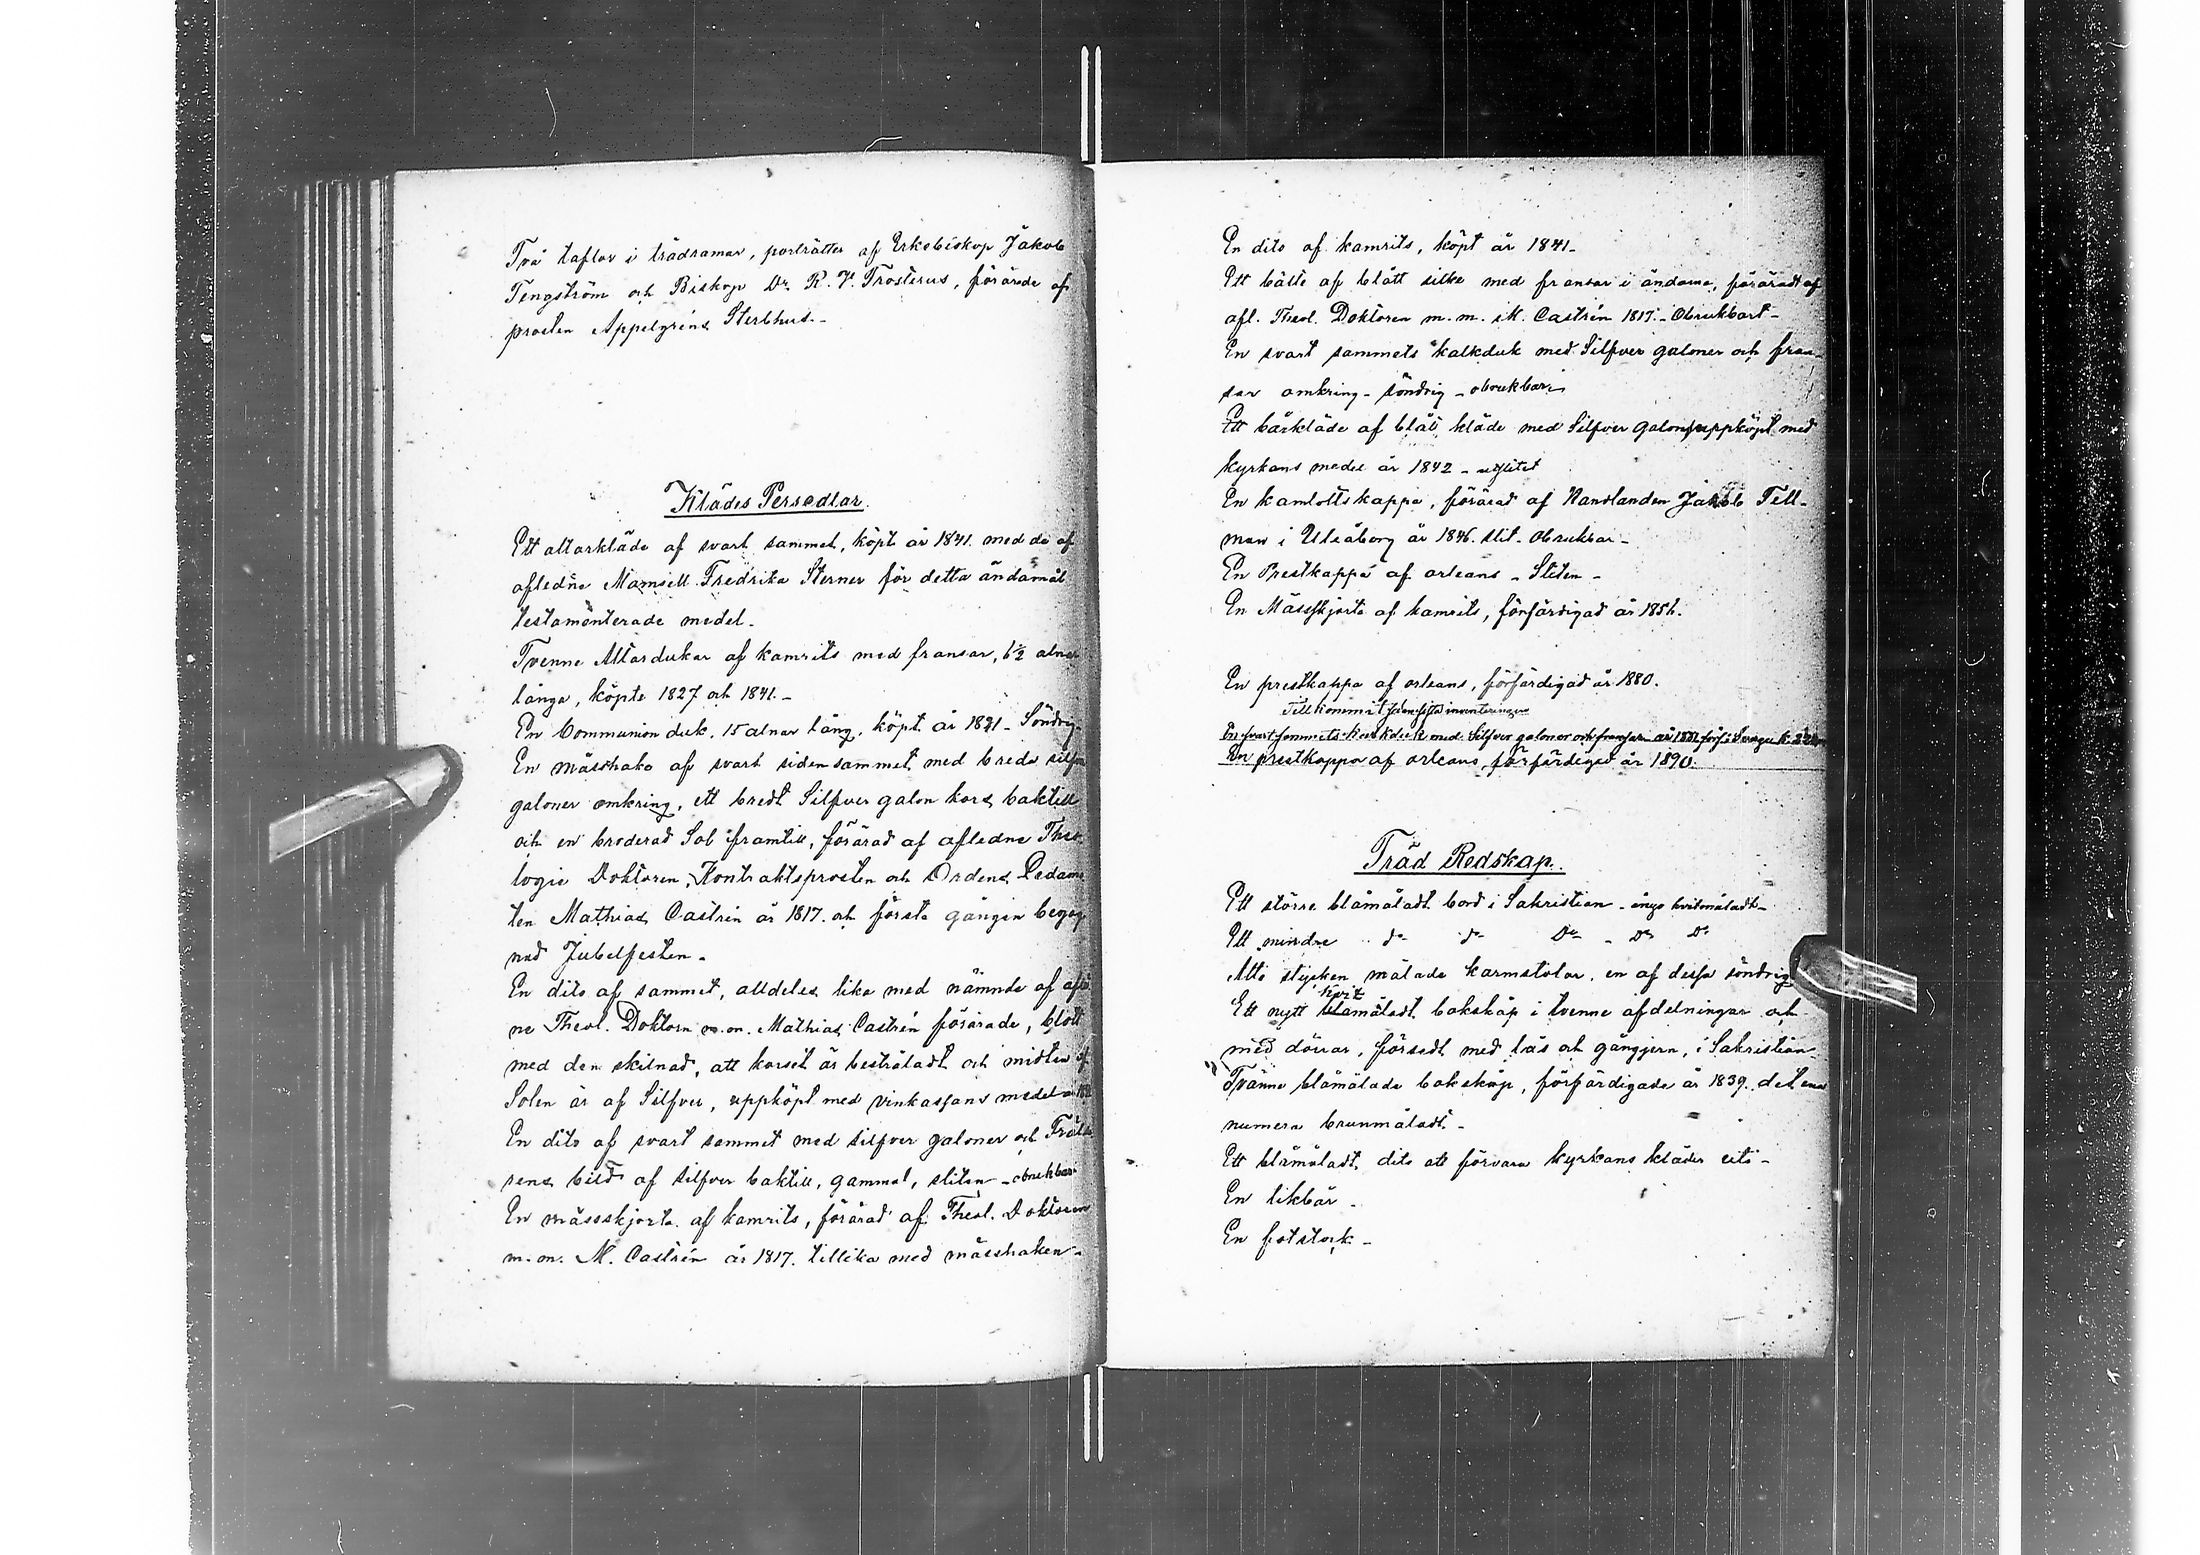 Två taflor i trädramar, porträtter af Erkebiskop Jakob
Tengström och Biskop Dr. R. V. Frosterus, förärade af
prosten Appelgréns Sterbhus.-
Klädes Persedlar.
Ett altarkläde af svart sammet, köpt år 1841. med de af
afledna Mamsell Fredrika Sterner för detta ändamål
testamenterade medel.
Tvenne Altardukar af kamrits med fransar, 6½ alnar
långa, köpte 1827 och 1841.-
En Communion duk, 15 alnar lång, köpt år 1821 - Söndrig
En mässhake af svart siden sammet med breda silfver
galoner omkring, ett bredt Silfver galon kors baktill
och en broderad Sol framtill, förärad af afledne Theo-
logie Doktoren, Kontraktsprosten och Ordens Ledamo-
ten Mathias Castrén år 1817. och första gången begag-
nad Jubelfesten.
En dito af sammet, alldeles lika med nämnde af afled-
ne Theol. Doktorn m.m. Mathias Castrén förärade, blott
med den skilnad, att korset är bestråladt och midten af
Solen är af Silfver, uppköpt med vinkassans medel
En dito af svart sammet med silfver galoner och Fräl-
sens bild af silfver baktill, gammal, sliten - obrukbar
En mässskjorta af kamrits, förärad af Theol. Doktoren
m.m. M. Castrén år 1817. tillika med mässhaken-
En dito af kamrits, köpt år 1841-
Ett bälte af blått silke med fransar i ändarne, föräradt af
afl. Theol. Doktoren m.m. M. Castrén 1817.- Obrukbart-
En svart sammets kalkduk med Silfver galoner och fran-
sar omkring - söndrig - obrukbar-
Ett bårkläde af blått kläde med Silfver galon, uppköpt med
kyrkans medel år 1842 - utslitet
En kamlottskappa, förärad af Handlanden Jakob Tell-
man i Uleåborg år 1846. slit. Obrukbar-
En Prestkappa af orleans - Sliten -
En Mässskjorta af kamrits, förfärdigad år 1856.
En prestkappa af orleans, förfärdigad år 1880.
Tillkommit sedan sista inventeringen
En svart sammets Kalkduk med Silfver galoner och fransar år 1882
En prestkappa af orleans, förfärdigad år 1890.
Träd Redskap.
Ett större blåmåladt bord i Sakristian - hvitmåladt-
Ett mindre do do Do - Do Do
Åtta stycken målade karmstolar, en af dessa söndrig
hvit
Ett nytt blåmåladt bokskåp i tvenne afdelningar och
med dörrar, försedt med lås och gångjern, i Sakristian
Tvänne blåmålade bokskåp, förfärdigade år 1839. det ena
numera brunmåladt-
Ett blåmåladt dito att förvara kyrkans kläder uti-
En likbår-
En fotstock-